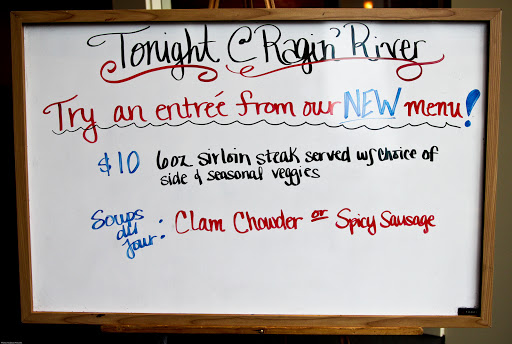 Tonight @ Ragin' River
Try an entreé from our NEW menu!
$10 6oz sirloin steak served w/ choice of
side & seasonal veggies
Soups du Jour: Clam Chowder or Spicy Sausage